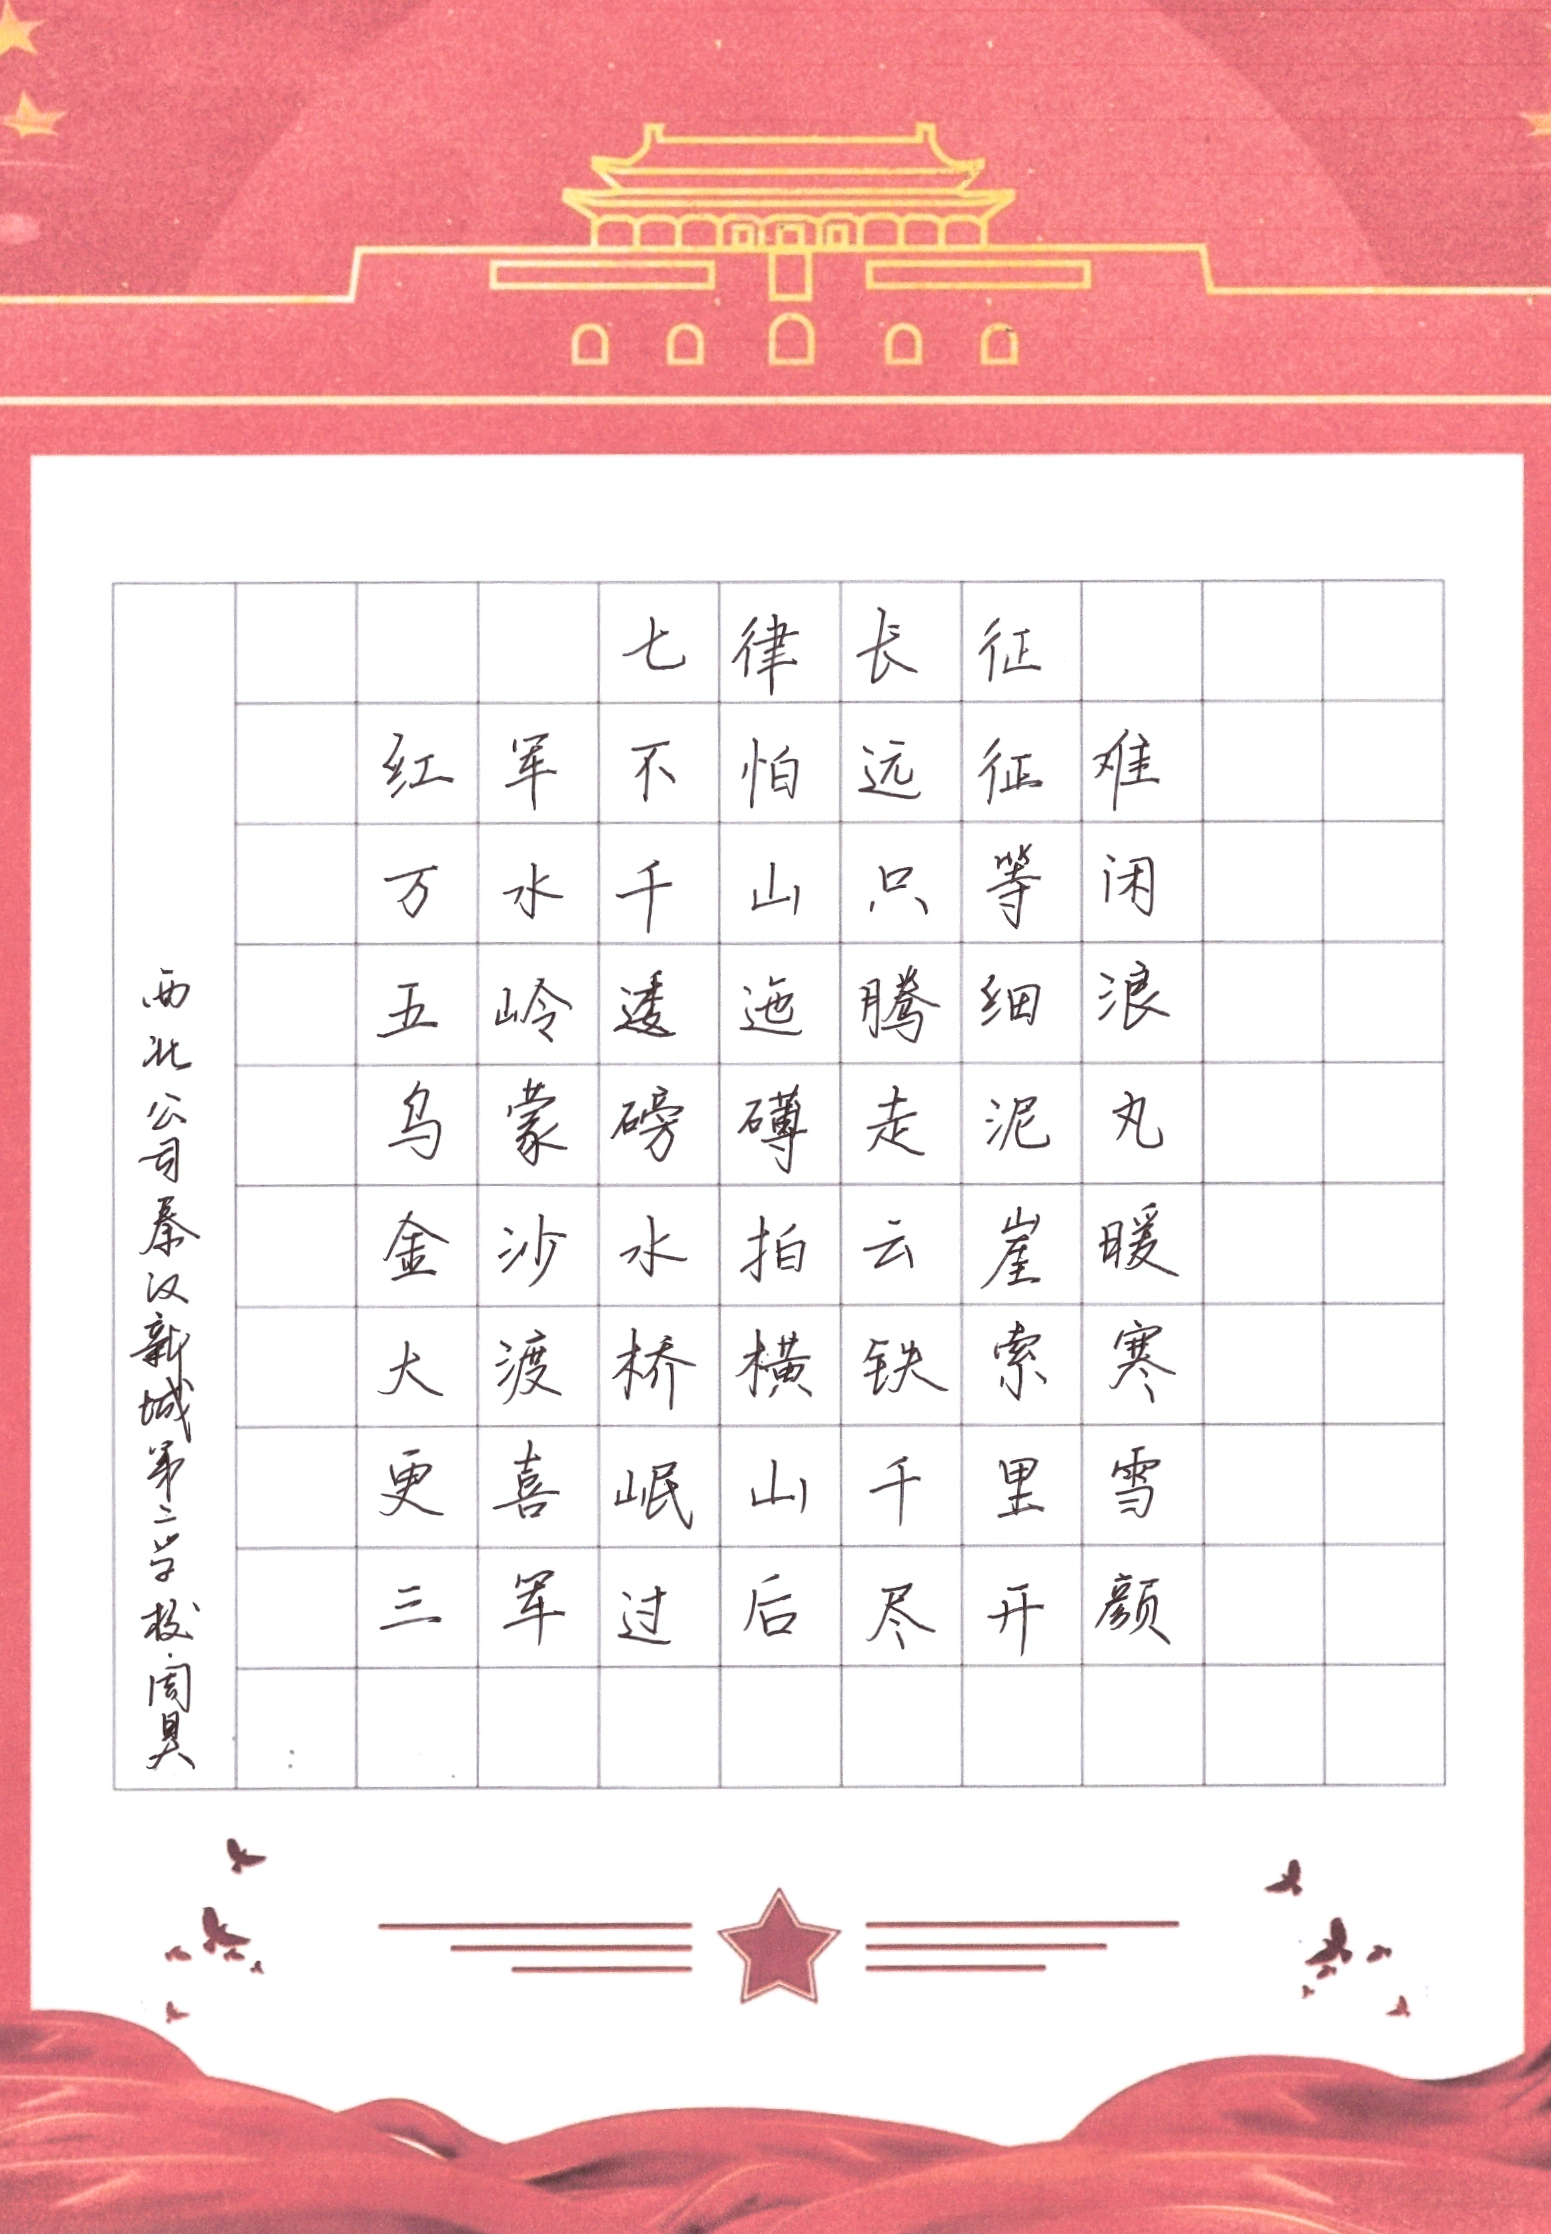 七律长征
红军不怕远征难
万水千山只等闲
五岭逶迤腾细浪
乌蒙磅礴走泥丸
金沙水拍云崖暖
大渡桥横铁索寒
更喜岷山千里雪
三军过后尽开颜
西北公司秦汉新城第三学校周昊